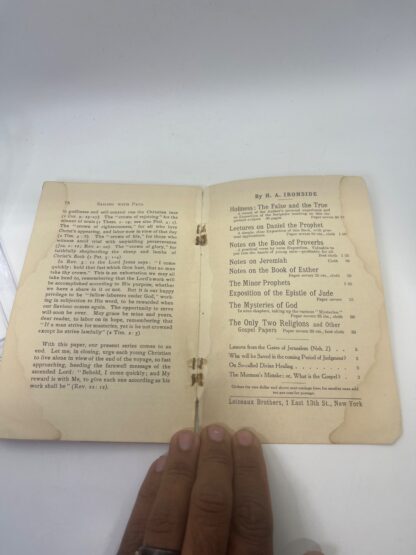 SAILING WITH PAUL
in godliness and self-control run the Christian race
(1 Cor. 9: 25-27). The "crown of rejoicing" for the
winner of souls (1 Thess. 2: 19, see also Phil. 4: 1).
The "crown of righteousness," for all who love
Christ's appearing, and labor now in view of that day
(2 Tim. 4: 8). The "crown of life," for those who
witness amid trial with unyielding perseverance
(Jas. 1: 12; Rev. 2: 10). The "crown of glory," for
faithfully shepherding the sheep and lambs of
Christ's flock (1 Pet. 5: 1-4).
In Rev. 3: 11 the Lord Jesus says: "I come
quickly: hold that fast which thou hast, that no man
take thy crown." This is an exhortation we may all
take heed to, remembering that the Lord's work will
be accomplished according to His purpose, whether
we have a share in it or not. But it is our happy
privilege to be "fellow-laborers under God," work-
ing in submission to His word, to be rewarded when
our Saviour comes again. The opportunity to serve
will soon be over. May grace be mine and yours,
dear reader, to labor on in hope, remembering that
"If a man strive for masteries, yet is he not crowned
except he strive lawfully" (2 Tim. 2: 5).
With this paper, our present series comes to an
end. Let me, in closing, urge each young Christian
to live alone in view of the end of the voyage, so fast
approaching, heeding the farewell message of the
ascended Lord: "Behold, I come quickly; and My
reward is with Me, to give each one according as his
work shall be" (Rev. 22: 12).
By H. A. IRONSIDE.
Holiness: The False and the True
Lectures on Daniel the Prophet
Notes on the Book of Proverbs
Notes on Jeremiah
Notes on the Book of Esther
The Minor Prophets
Exposition of the Epistle of Jude
The Mysteries of God
The Only Two Religions and Other
Gospel Papers
Lessons from the Gates of Jerusalem (Neh. 3)
Who will be Saved in the coming Period of Judgment?
On So-called Divine Healing
The Mormon's Mistake: or, What is the Gospel?
Loizeaux Brothers, 1 East 13th St., New York